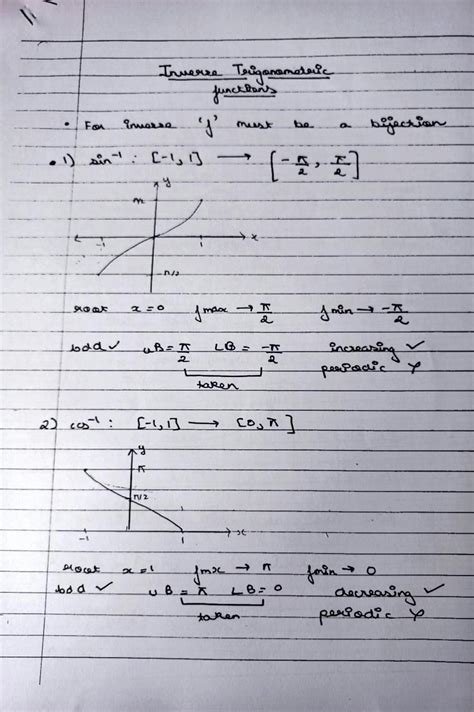 Inverse Trigonometric
functions
• For inverse 'f' must be a bijection
• 1) sin⁻¹ : [-1, 1] → [-π/2, π/2]
y
x
-1
1
-π/2
root x=0 fmax → π/2 fmin → -π/2
bdd ✓ UB = π/2 LB = -π/2 increasing ✓
taken periodic ✗
2) cos⁻¹ : [-1, 1] → [0, π]
y
π
π/2
-1
1
x
root x=1 fmx → π fmin → 0
bdd ✓ UB = π LB = 0 decreasing ✓
taken periodic ✗